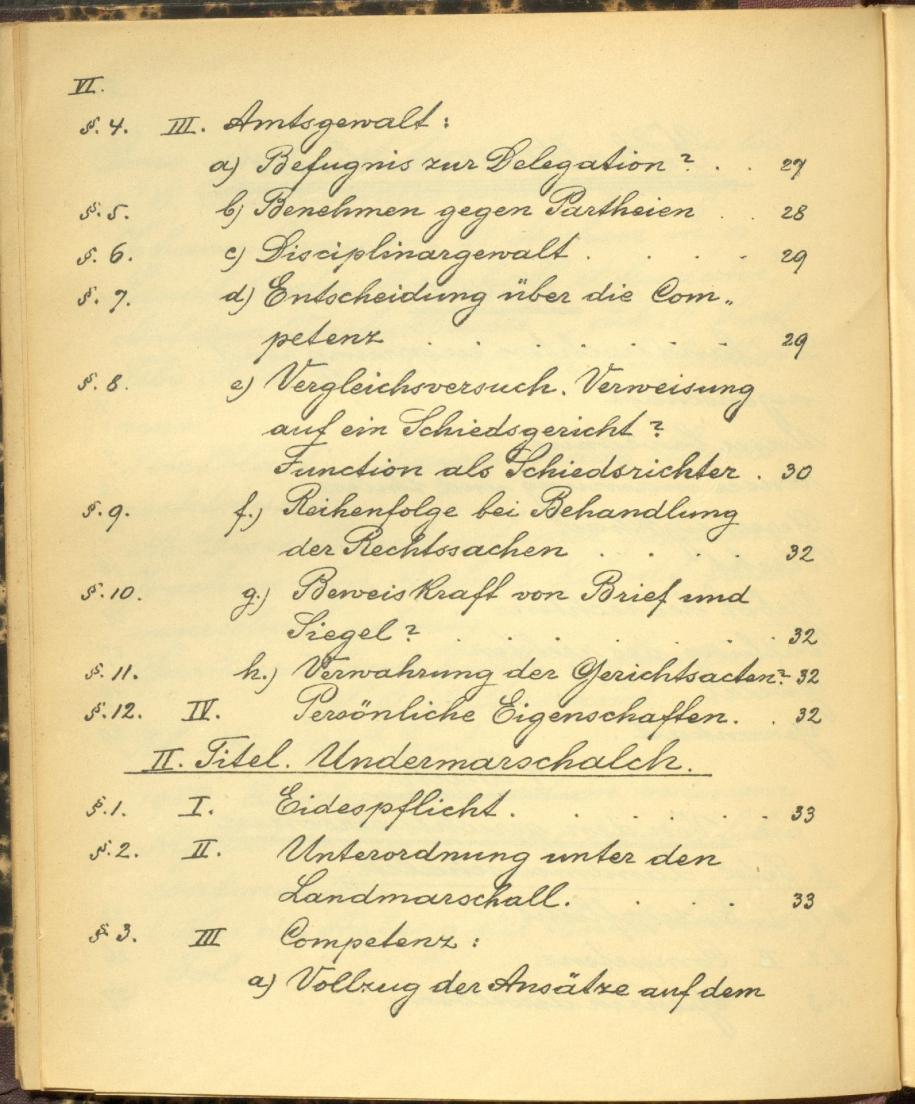 VI.
§. 4. III. Amtsgewalt:
a) Befugnis zur Delegation? . . 27
§. 5. b) Benehmen gegen Partheien . . 28
§. 6. c) Disciplinargewalt . . . . . 29
§. 7. d) Entscheidung über die Com„
petenz . . . . . . . 29
§. 8. e) Vergleichsversuch. Verweisung
auf ein Schiedsgericht?
Function als Schiedsrichter . 30
§. 9. f.) Reihenfolge bei Behandlung
der Rechtssachen . . . . 32
§. 10. g.) Beweiskraft von Brief und
Siegel? . . . . . . . 32
§. 11. h.) Verwahrung der Gerichtsacten? 32
§. 12. IV. Persönliche Eigenschaften. . 32
II. Titel. Undermarschalch.
§. 1. I. Eidespflicht . . . . . . 33
§. 2. II. Unterordnung unter den
Landmarschall. . . . 33
§ 3. III Competenz:
a) Vollzug der Ansätze auf dem